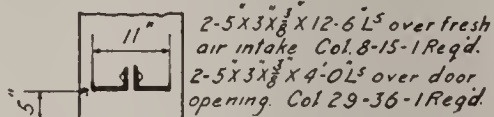 11"
5"
2-5"x3"x3/8"x12'-6" Ls over fresh
air intake Col. 8-15-1 Req'd.
2-5"x3"x3/8"x4'-0" Ls over door
opening. Col 29-36-1 Req'd.